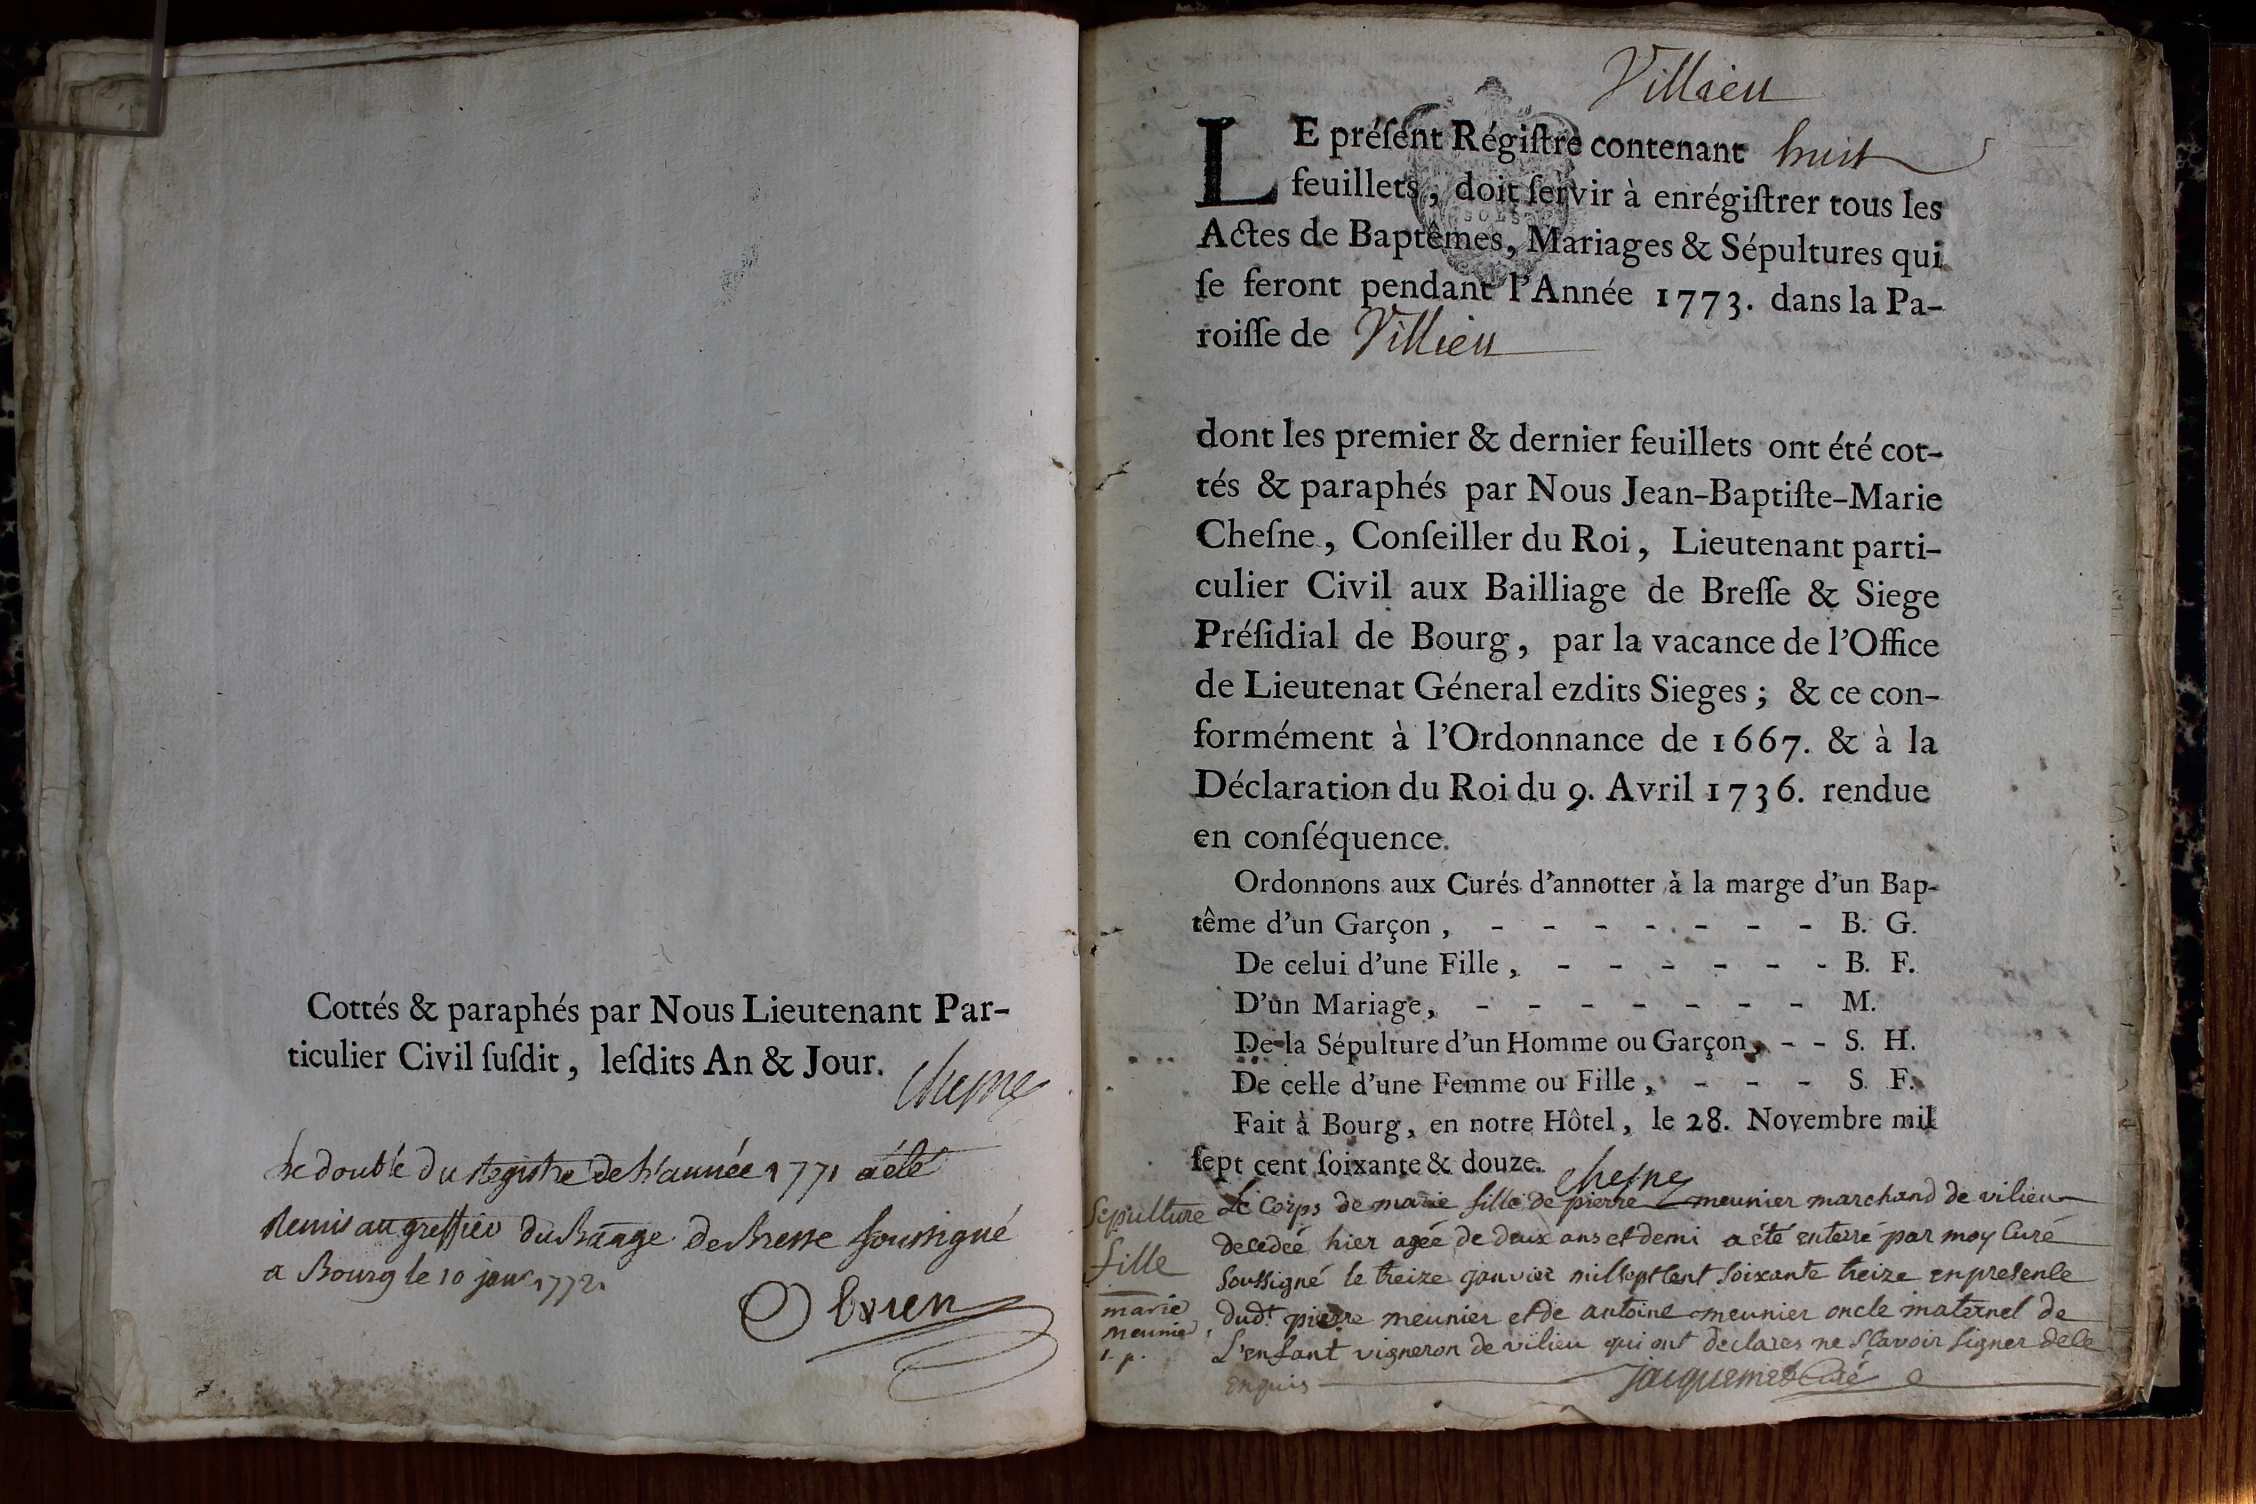 Cottés & paraphés par Nous Lieutenant Par-
ticulier Civil ſuſdit, leſdits An & Jour.
Chesne
Le double du Registre de L'année 1771 a été
Remis au greffier du Baage de Bresse soussigné
a Bourg le 10 janv 1772.
Villieu
LE préſent Régiſtre contenant huit
feuillets, doit ſervir à enrégiſtrer tous les
Actes de Baptêmes, Mariages & Sépultures qui
ſe feront pendant l'Année 1773. dans la Pa-
roiſſe de Villieu
dont les premier & dernier feuillets ont été cot-
tés & paraphés par Nous Jean-Baptiſte-Marie
Cheſne, Conſeiller du Roi, Lieutenant parti-
culier Civil aux Bailliage de Breſſe & Siege
Préſidial de Bourg, par la vacance de l'Office
de Lieutenat Géneral ezdits Sieges; & ce con-
formément à l'Ordonnance de 1667. & à la
Déclaration du Roi du 9. Avril 1736. rendue
en conſéquence.
Ordonnons aux Curés d'annotter à la marge d'un Bap-
tême d'un Garçon, - - - - - - - B. G.
De celui d'une Fille, - - - - - - B. F.
D'un Mariage, - - - - - - - M.
De la Sépulture d'un Homme ou Garçon, - - S. H.
De celle d'une Femme ou Fille, - - - S. F.
Fait à Bourg, en notre Hôtel, le 28. Novembre mil
ſept cent ſoixante & douze.
Chesne
Sepulture
fille
marie
meunier
Le Corps de marie fille de pierre meunier marchand de vilieu
decedeé hier ageé de deux ans et demi a eté enterré par moy Curé
soussigné le treize janvier mil sept cent soixante treize en presence
dudt pierre meunier et de antoine meunier oncle maternel de
L'enfant vigneron de vilieu qui ont declares ne sçavoir signer de ce
enquis
jacquemet Curé